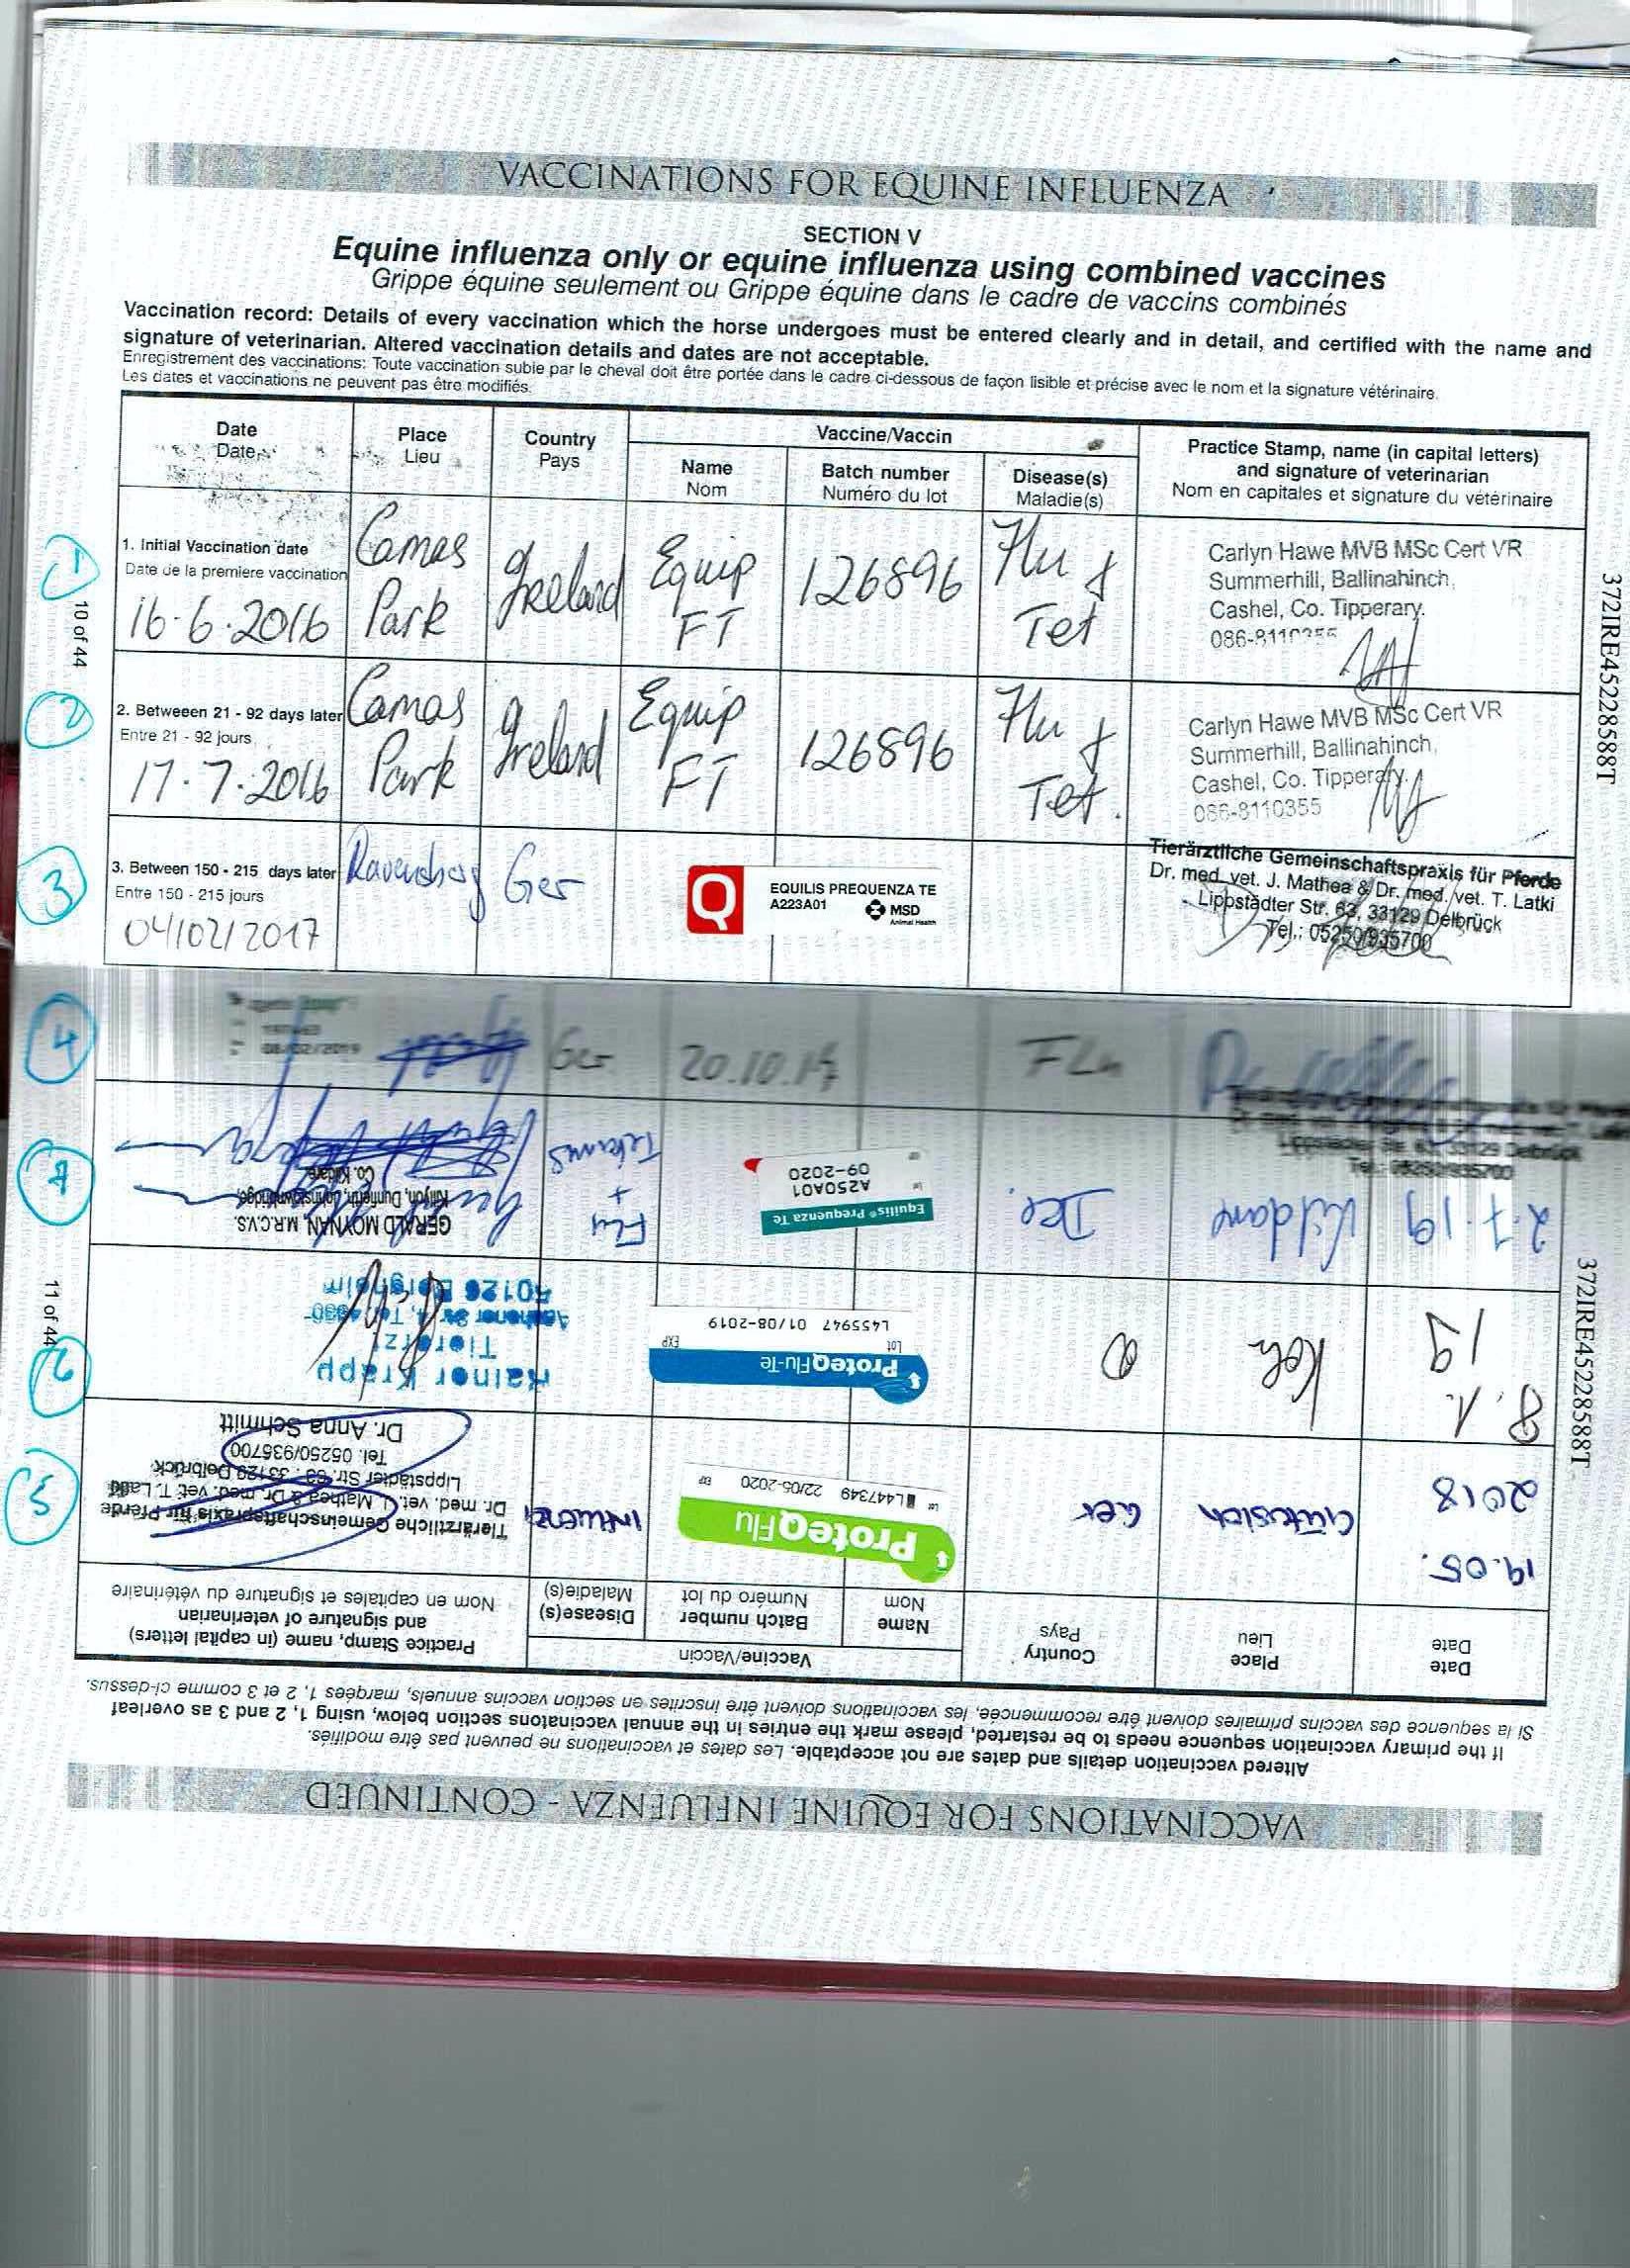 VACCINATIONS FOR EQUINE INFLUENZA
SECTION V
Equine influenza only or equine influenza using combined vaccines
Grippe équine seulement ou Grippe équine dans le cadre de vaccins combinés
Vaccination record: Details of every vaccination which the horse undergoes must be entered clearly and in detail, and certified with the name and
signature of veterinarian. Altered vaccination details and dates are not acceptable.
Enregistrement des vaccinations: Toute vaccination subie par le cheval doit être portée dans le cadre ci-dessous de façon lisible et précise avec le nom et la signature vétérinaire.
Les dates et vaccinations ne peuvent pas être modifiés.
Date
Date
Place
Lieu
Country
Pays
Vaccine/Vaccin
Name
Nom
Batch number
Numéro du lot
Disease(s)
Maladie(s)
Practice Stamp, name (in capital letters)
and signature of veterinarian
Nom en capitales et signature du vétérinaire
1
1. Initial Vaccination date
Date de la premiere vaccination
16.6.2016
Camas
Park
Ireland
Equip
FT
126896
Flu &
Tet
Carlyn Hawe MVB MSc Cert VR
Summerhill, Ballinahinch,
Cashel, Co. Tipperary.
086-8110355
10 of 44
372IRE45228588T
2
2. Betweeen 21 - 92 days later
Entre 21 - 92 jours
17.7.2016
Camas
Park
Ireland
Equip
FT
126896
Flu &
Tet.
Carlyn Hawe MVB MSc Cert VR
Summerhill, Ballinahinch,
Cashel, Co. Tipperary.
086-8110355
3
3. Between 150 - 215 days later
Entre 150 - 215 jours
04/02/2017
Ger
Q
EQUILIS PREQUENZA TE
A223A01
MSD
Animal Health
Tierärztliche Gemeinschaftspraxis für Pferde
Dr. med. vet. J. Mathea & Dr. med. vet. T. Latki
Lippstädter Str. 63, 33129 Delbrück
Tel.: 05250/935700
4
08/02/2019
Ger
20.10.17
Flu
Lippstädter Str. 63, 33129 Delbrück
Tel.: 05250/935700
VACCINATIONS FOR EQUINE INFLUENZA - CONTINUED
Altered vaccination details and dates are not acceptable. Les dates et vaccinations ne peuvent pas être modifiés.
If the primary vaccination sequence needs to be restarted, please mark the entries in the annual vaccinatons section below, using 1, 2 and 3 as overleaf
Si la séquence des vaccins primaires doivent être recommencée, les vaccinations doivent être inscrites en section vaccins annuels, margées 1, 2 et 3 comme ci-dessus.
Date
Date
Place
Lieu
Country
Pays
Vaccine/Vaccin
Name
Nom
Batch number
Numéro du lot
Disease(s)
Maladie(s)
Practice Stamp, name (in capital letters)
and signature of veterinarian
Nom en capitales et signature du vétérinaire
5
19.05.
2018
Ger
ProteqFlu
Lot L447349 22/05-2020 EXP
Influenza
Tierärztliche Gemeinschaftspraxis für Pferde
Dr. med. vet. J. Mathea & Dr. med. vet. T. Latki
Lippstädter Str. 63, 33129 Delbrück
Tel. 05250/935700
Dr. Anna Schmitt
6
8.1.
19
Köln
D
ProteqFlu-Te
Lot EXP
L455947 01/08-2019
Rainer Krapp
Tierarzt
50126 Bergheim
11 of 44
372IRE45228588T
7
2.7.19
Kildare
Equilis® Prequenza Te
Lot A250A01
EXP 09-2020
Flu
+
Tetanus
GERALD MOYNAN, M.R.C.V.S.
Dunferth, Johnstownbridge,
Co. Kildare.